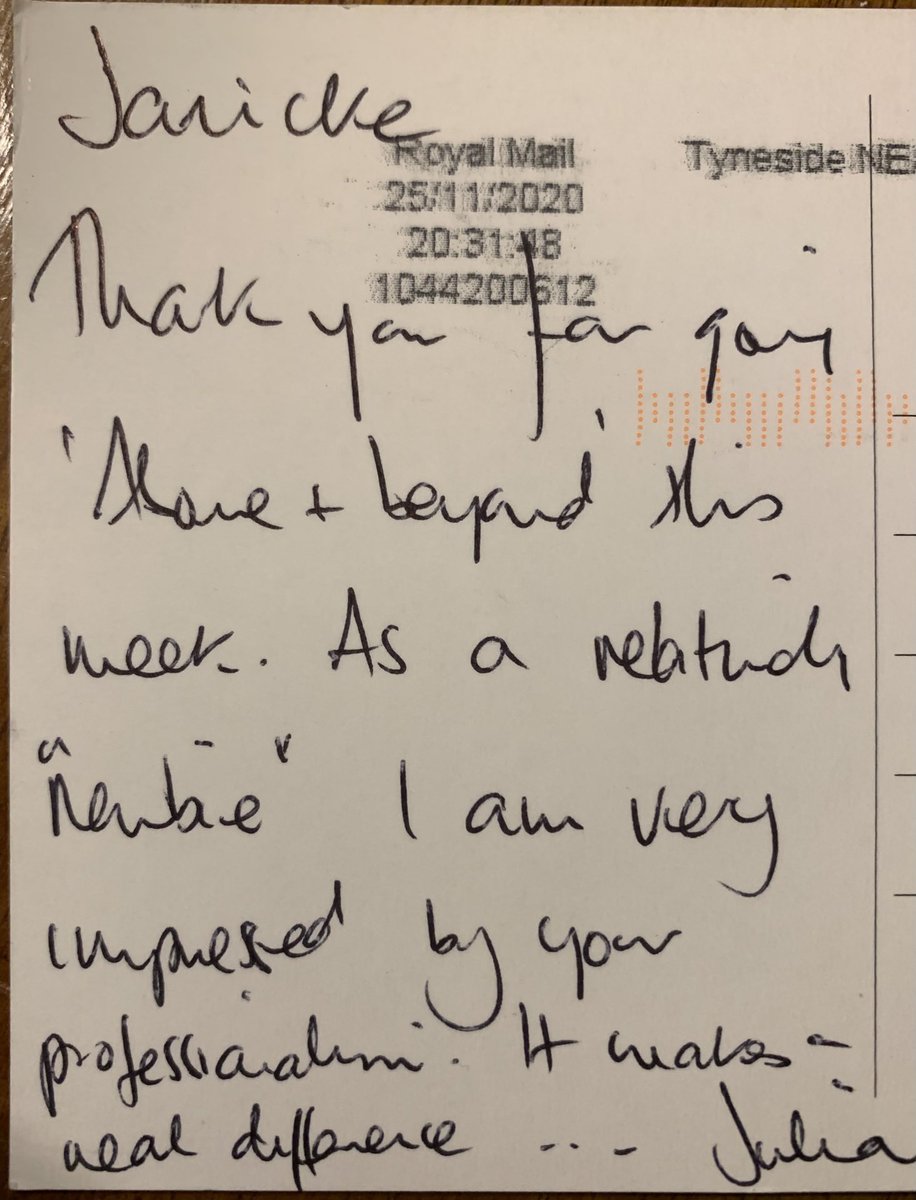 Janicke
Royal Mail
Tyneside NE
25/11/2020
20:31:48
1044200612
Thank you for going
'Above + beyond' this
week. As a relatively
"Newbie" I am very
impressed by your
professionalism. It makes a
real difference .... Julia